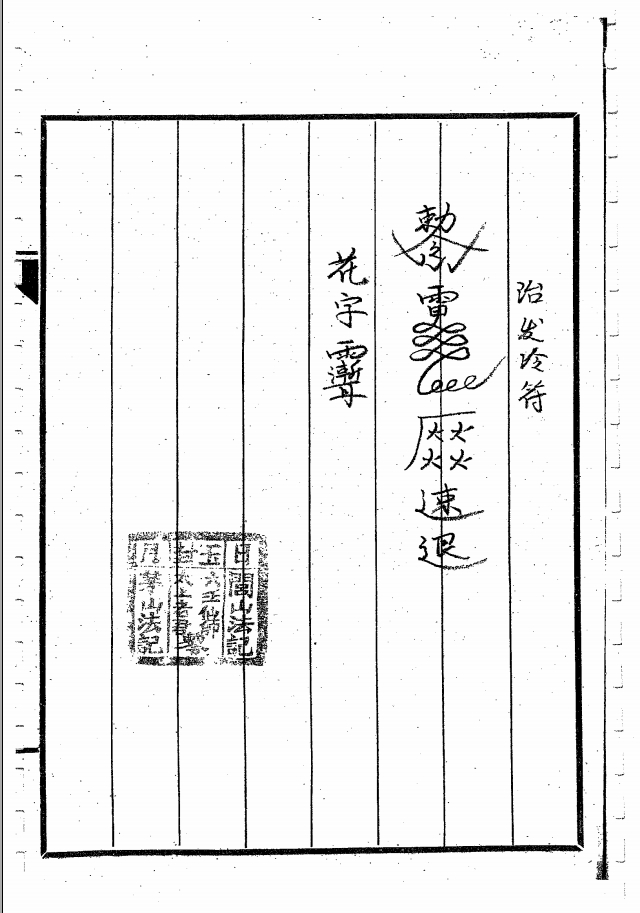 治发冷符
勅令雷
速退
花字
日閭山法記
玉六壬仙師
封太上老君
月茅山法記